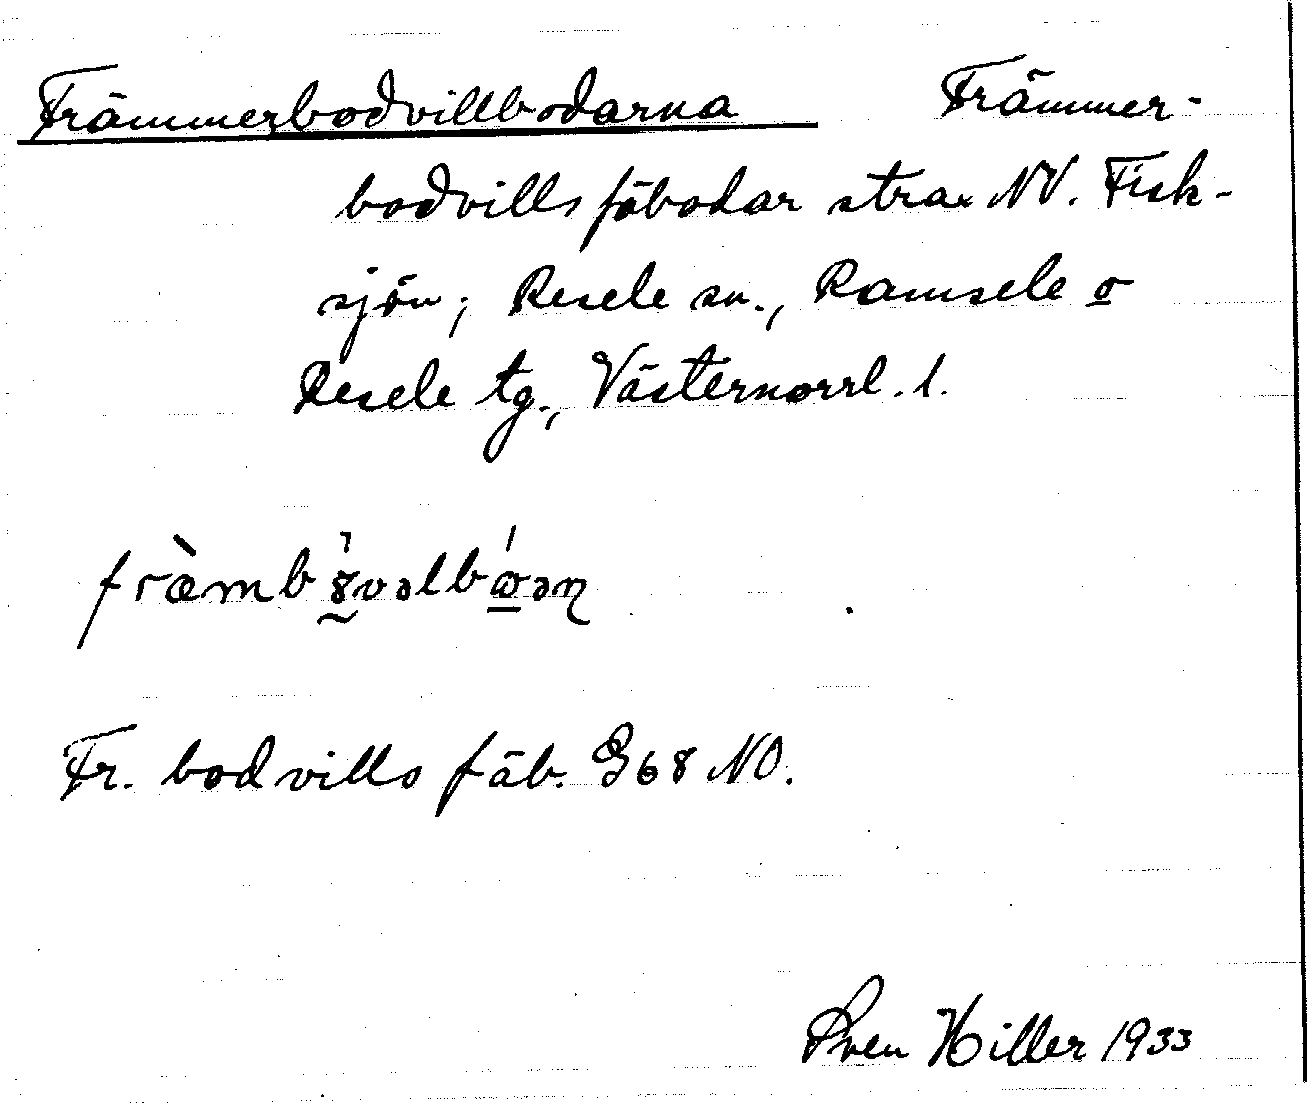 Främmerbodvillbodarna Främmer-
bodvills fäbodar strax NV. Fisk-
sjön; Resele sn., Ramsele o
Resele tg., Västernorrl. l.
Fr. bodvills fäb. G68 NO.
Sven Hiller 1933